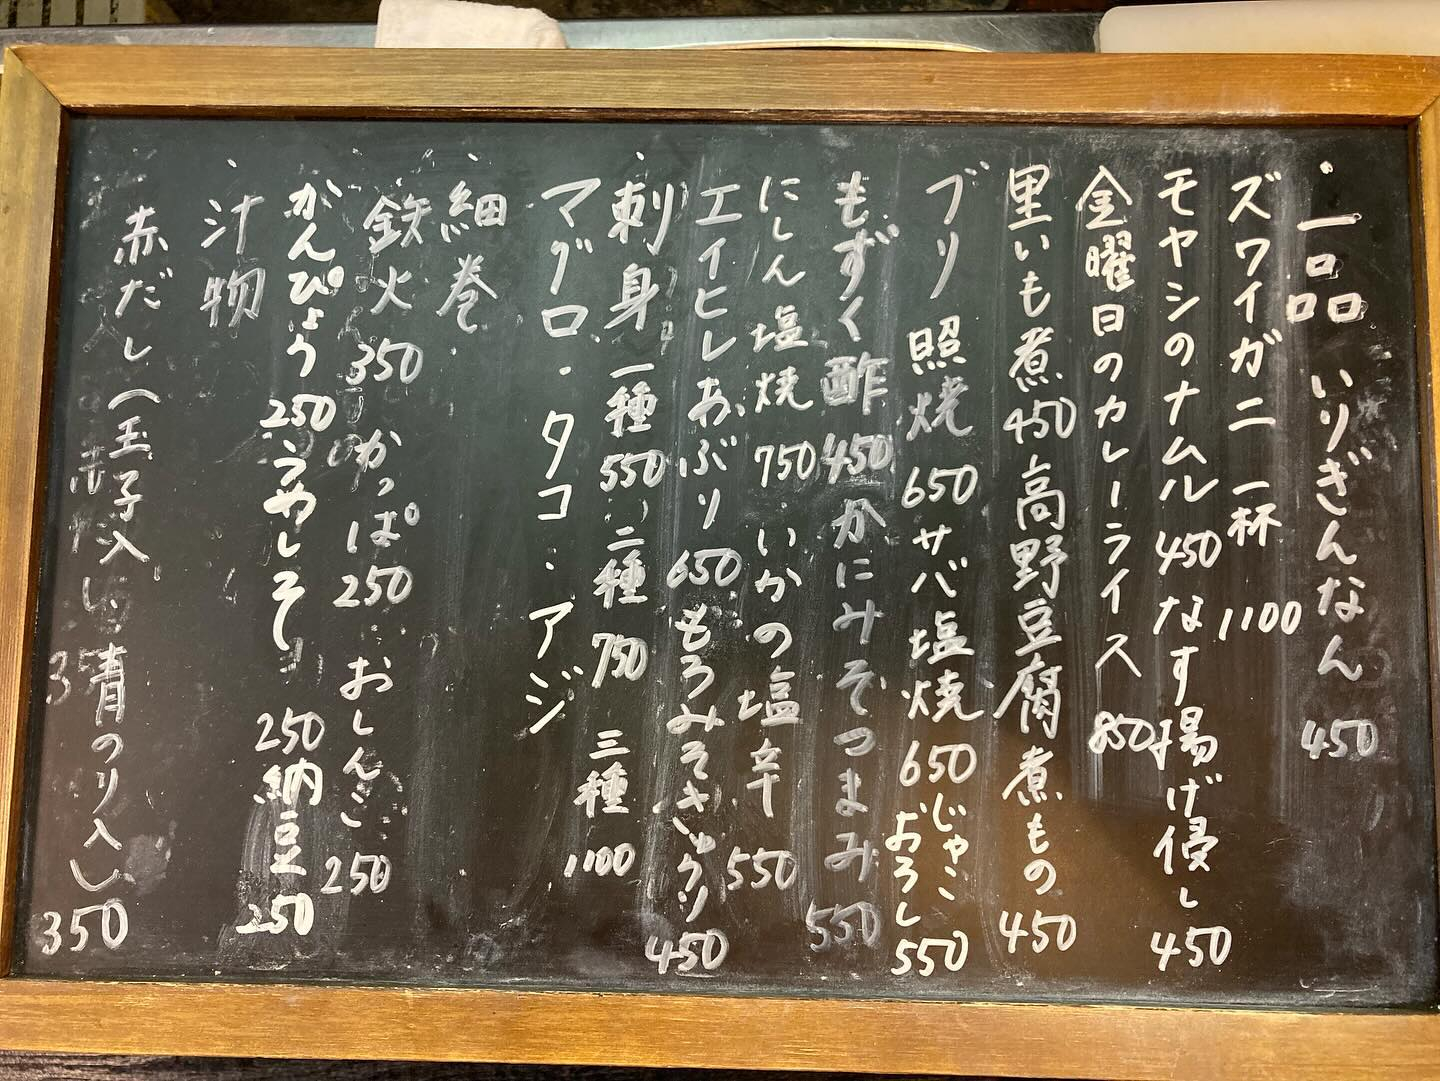 ・一品 いりぎんなん 450
ズワイガニ一杯 1100
モヤシのナムル 450 なす揚げ浸し 450
金曜日のカレーライス 850
里いも煮 450 高野豆腐煮もの 450
ブリ照焼 650 サバ塩焼 650 じゃこおろし 550
もずく酢 450 かにみそつまみ 550
にしん塩焼 750 いかの塩辛 550
エイヒレあぶり 650 もろみそきゅうり 450
・刺身 一種 550 二種 750 三種 1100
マグロ・タコ・アジ
・細巻
鉄火 350 かっぱ 250 おしんこ 250
かんぴょう 250 うめしそ 250 納豆 250
・汁物
赤だし(玉子入り・青のり入り) 350